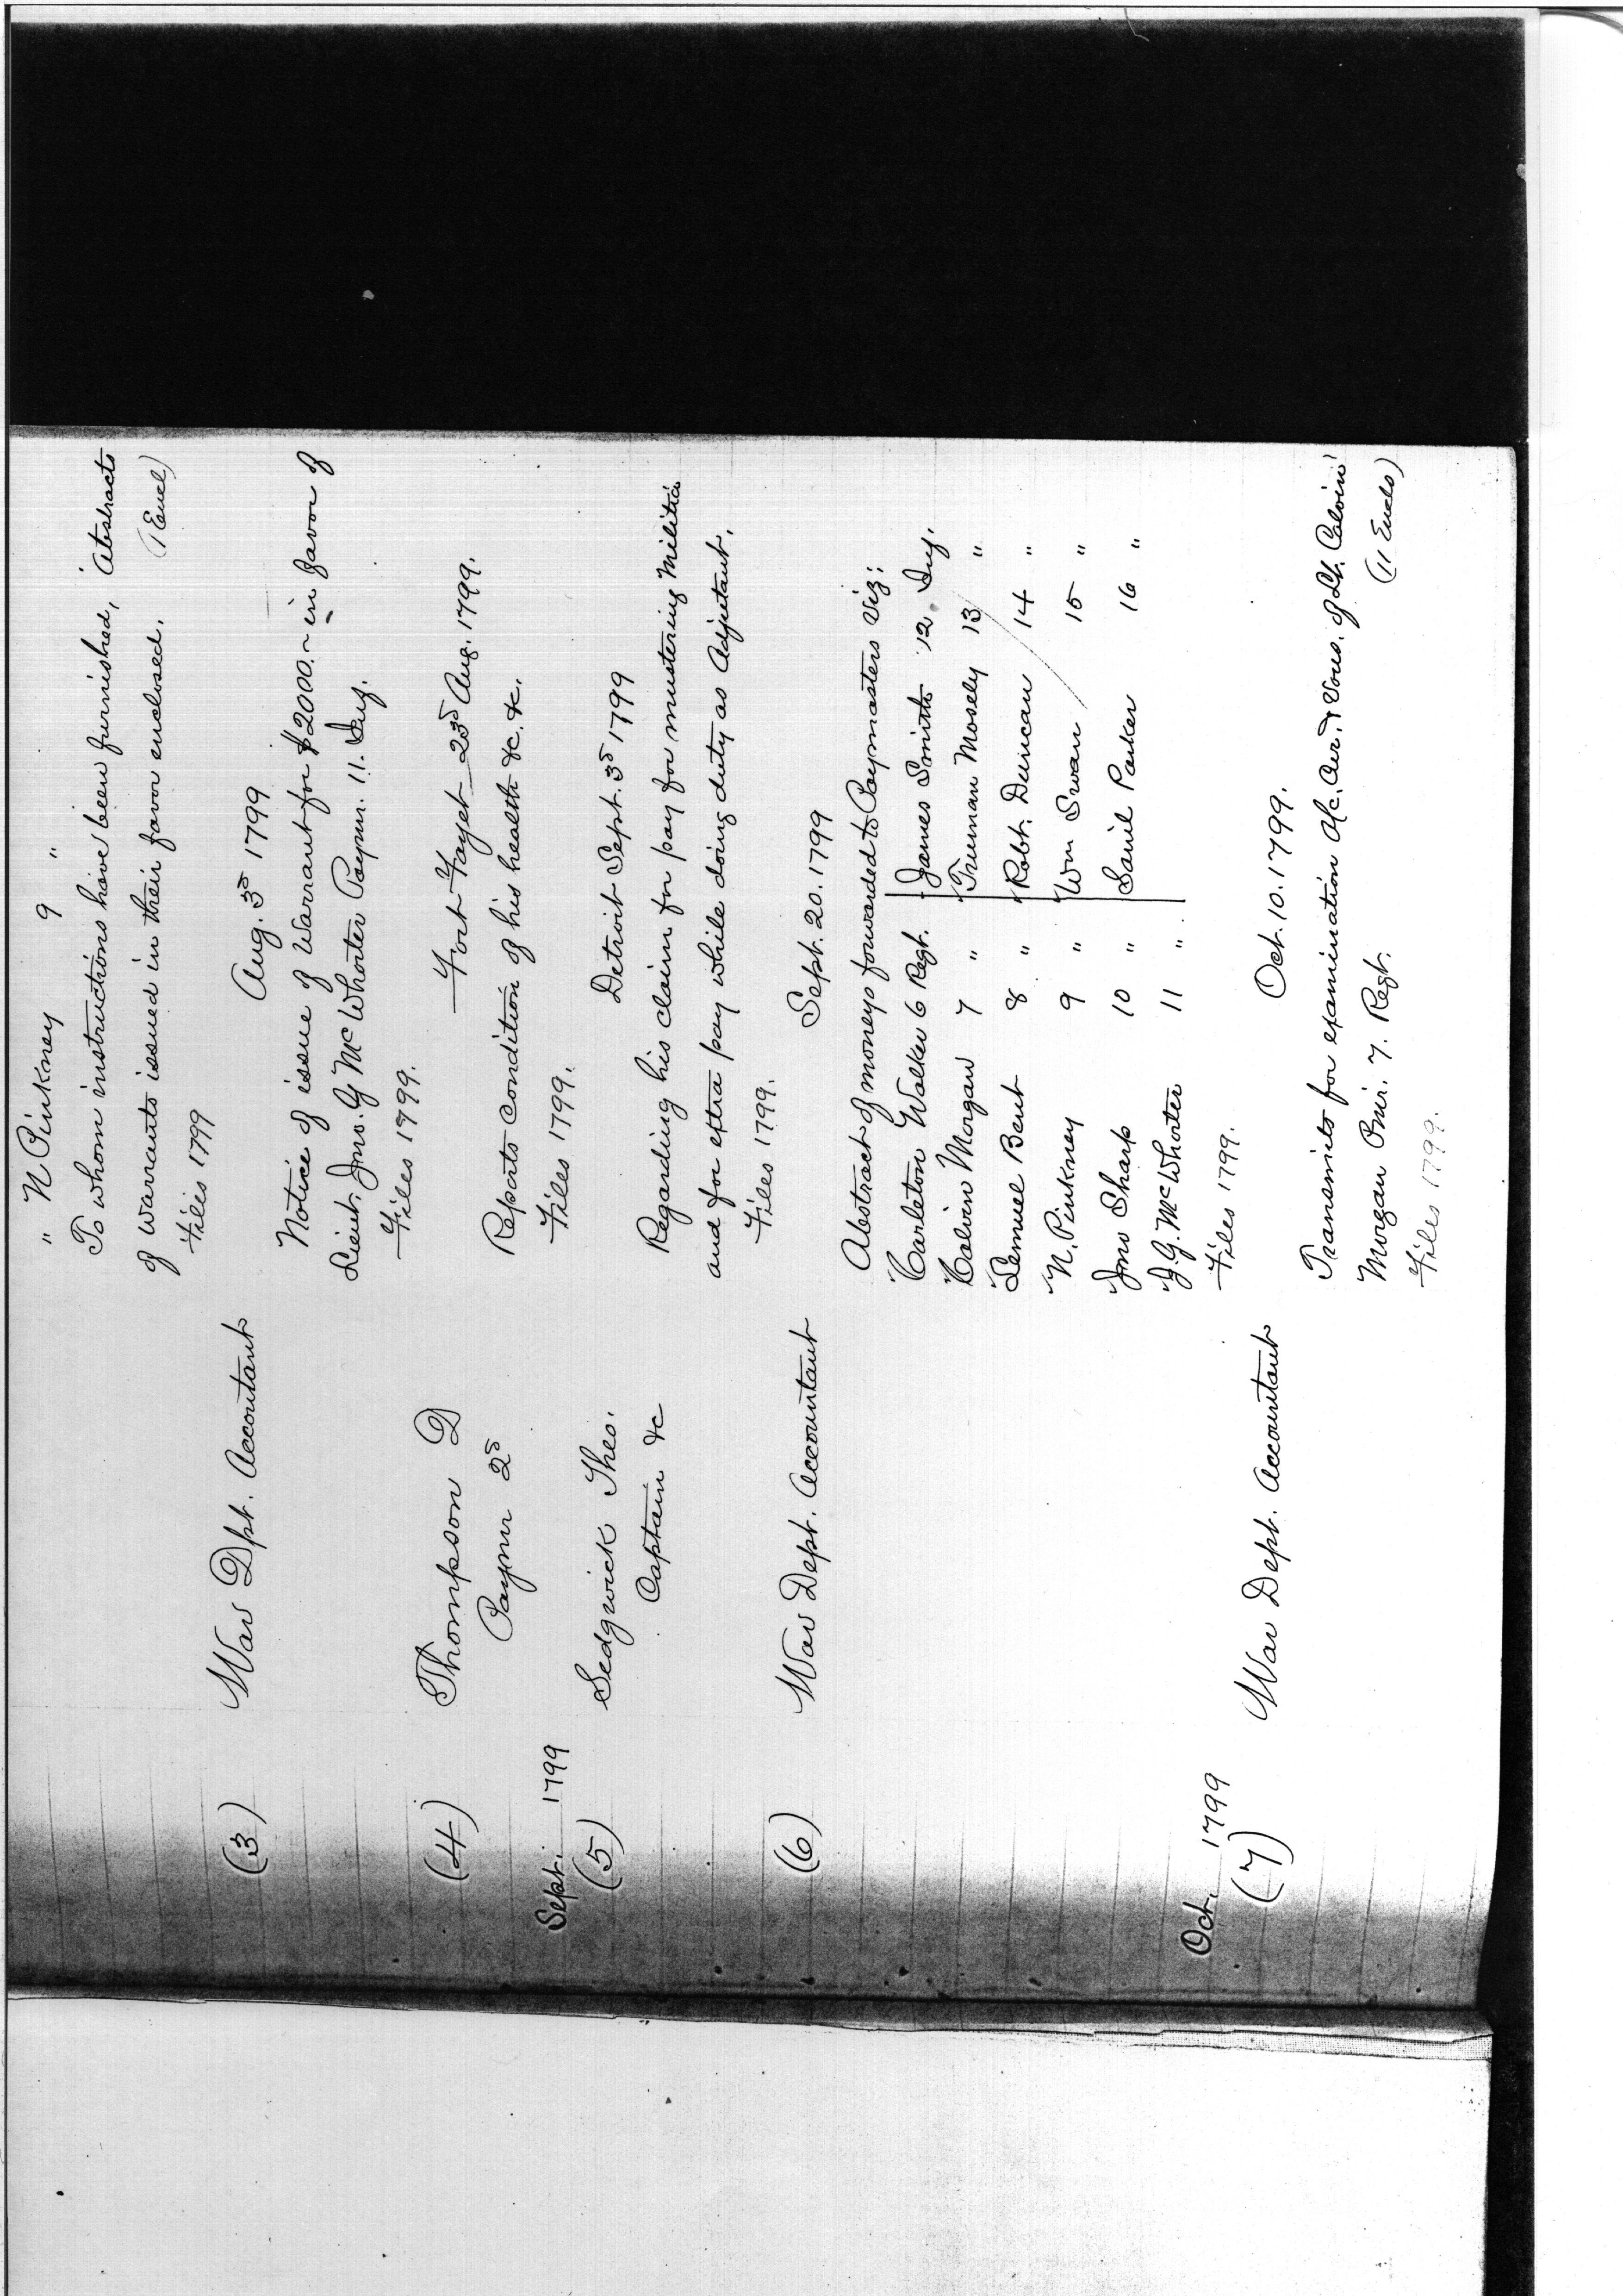 " N Pinkney 9 "
To whom instructions have been furnished, Abstracts
of warrants issued in their favor enclosed. (1 Encl)
Files 1799
(3) War Dpt. Accountant Aug. 3d 1799
Notice of issue of Warrant for $2000.~ in favor of
Lieut. Jno. G McWhorter Paymr. 11. Inf.
Files 1799.
(4) Thompson D Fort Fayet 23d Aug. 1799.
Paymr 2d Reports condition of his health &c. &c.
Files 1799.
Sept. 1799
(5) Sedgwick Theo. Detroit Sept. 3d 1799
Captain &c Regarding his claim for pay for mustering Militia
and for extra pay while doing duty as Adjutant.
Files 1799.
(6) War Dept. Accountant Sept. 20. 1799
Abstract of moneys forwarded to Paymasters Viz:
Carleton Walker 6 Regt. James Smith 12. Inf.
Calvin Morgan 7 " Truman Mosely 13 "
Lemuel Bent 8 " Robt. Duncan 14 "
N. Pinkney 9 " Wm Swan 15 "
Jno Sharp 10 " Saml Parker 16 "
J. G. McWhorter 11 "
Files 1799.
Oct. 1799
(7) War Dept. Accountant Oct. 10. 1799.
Transmits for examination A/c. Cur. & Vous. of Lt. Calvin
Morgan Pmr. 7. Regt. (11 Encls)
Files 1799.